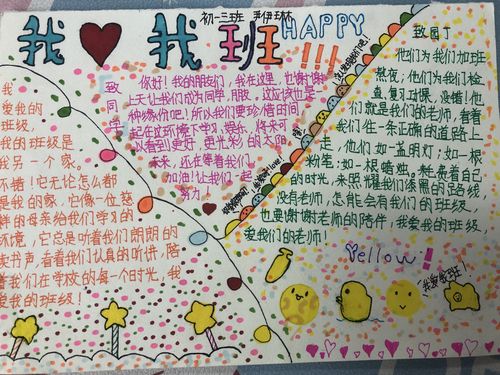 初一三班 尹伊琳
我❤我班
HAPPY
!!!
我
爱我的
班级，
我的班级是
我另一个家。
不错！它无论怎么都
是我的家，它像一位慈
祥的母亲给我们学习的
环境，它总是听着我们朗朗的
读书声，看着我们认真的听讲，陪
着我们在学校的每一个时光，我
爱我的班级！
致同学
你好！我的朋友们，我在这里，也谢谢
上天让我们成为同学，朋友，这应该也是一
种缘份吧！所以我们要珍惜时间
一起在这环境下学习，娱乐，将来可
以看到更好，更光彩的太阳
未来，还在等着我们，
加油！让我们一起
努力！
致园丁
他们为我们加班
熬夜，他们为我们检
查，复习功课，没错！他
们就是我们的老师，看着
我们往一条正确的道路上
走，他们如一盏明灯；如一根
粉笔；如一根蜡烛。耗费着自己
的时光，来照耀我们漆黑的路线
没有老师，怎能会有我们的班级，
也要谢谢老师的陪伴，我爱我的班级，
爱我们的老师！
Yellow!
我爱我班！